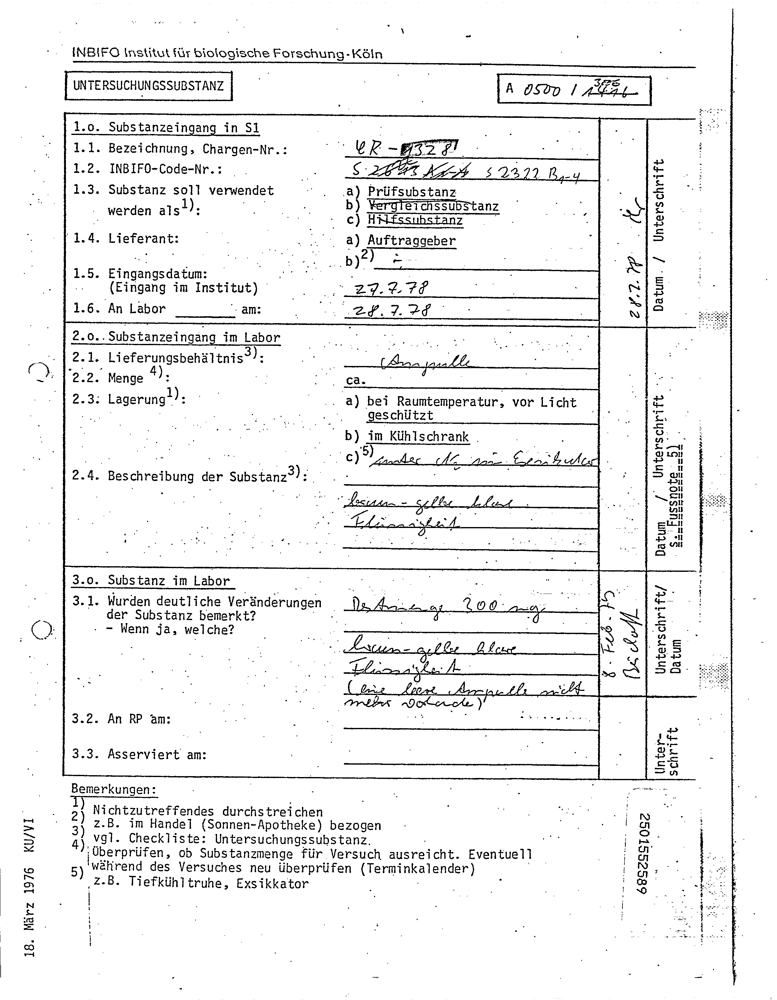 INBIFO Institut für biologische Forschung·Köln
UNTERSUCHUNGSSUBSTANZ
A 0500 /
1.o. Substanzeingang in S1
1.1. Bezeichnung, Chargen-Nr.:
1.2. INBIFO-Code-Nr.: S 2322 B1-4
1.3. Substanz soll verwendet
werden als1):
a) Prüfsubstanz
b) Vergleichssubstanz
c) Hilfssubstanz
1.4. Lieferant: a) Auftraggeber
b)2) ÷
1.5. Eingangsdatum:
(Eingang im Institut) 27.7.78
1.6. An Labor am: 28.7.78
Datum / Unterschrift
28.7.78
2.o. Substanzeingang im Labor
2.1. Lieferungsbehältnis3): Ampulle
2.2. Menge 4): ca.
2.3. Lagerung1): a) bei Raumtemperatur, vor Licht
geschützt
b) im Kühlschrank
c)5) unter N2 im Exsikkator
2.4. Beschreibung der Substanz3):
braun-gelbe klare
Flüssigkeit
Datum / Unterschrift
s. Fussnote 5)
3.o. Substanz im Labor
3.1. Wurden deutliche Veränderungen
der Substanz bemerkt?
- Wenn ja, welche?
Restmenge 300 mg
braun-gelbe klare
Flüssigkeit
(eine leere Ampulle nicht
mehr vorhanden)
8. Feb. 79
Unterschrift/
Datum
3.2. An RP am:
3.3. Asserviert am:
Unter-
schrift
Bemerkungen:
1) Nichtzutreffendes durchstreichen
2) z.B. im Handel (Sonnen-Apotheke) bezogen
3) vgl. Checkliste: Untersuchungssubstanz.
4) Überprüfen, ob Substanzmenge für Versuch ausreicht. Eventuell
während des Versuches neu überprüfen (Terminkalender)
5) z.B. Tiefkühltruhe, Exsikkator
18. März 1976 KU/VI
2501552589